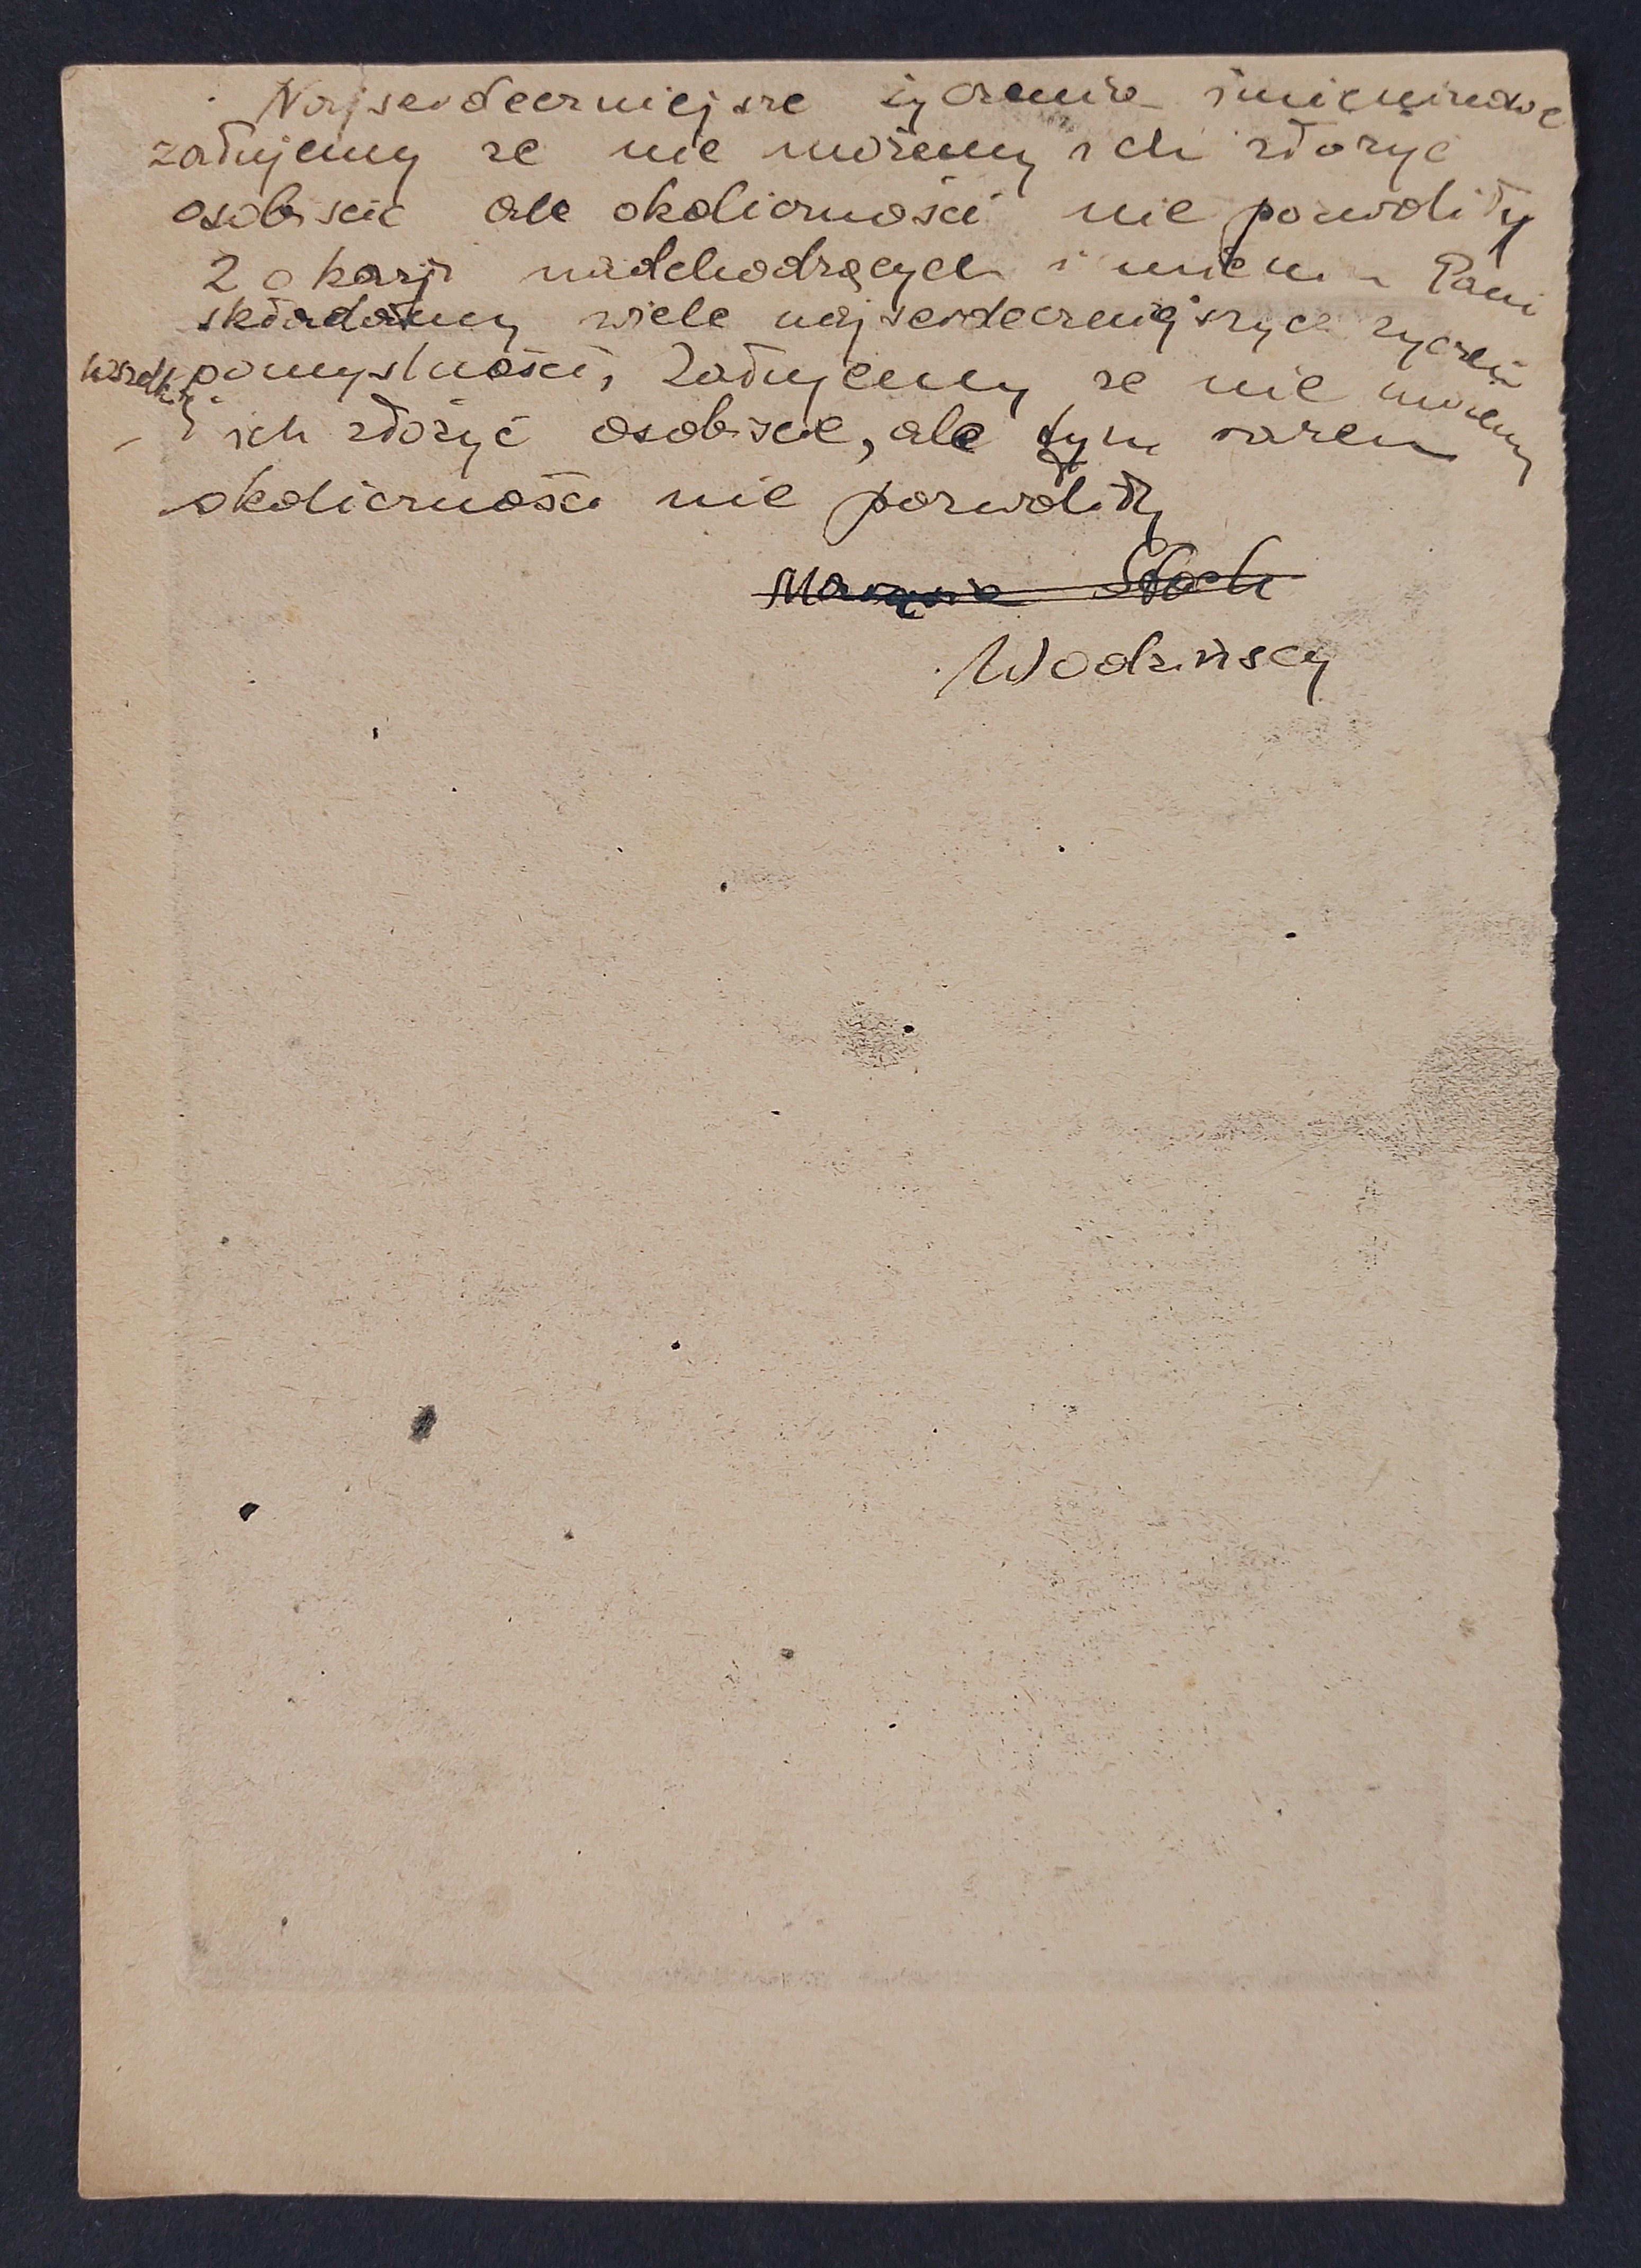 Najserdeczniejsze życzenia imieninowe
żałujemy że nie możemy ich złożyć
osobiscie ale okoliczności nie pozwoliły
Z okazji nadchodzących imienin Pani
składamy wiele najserdeczniejszych życzeń
wszelkiej pomyslności, Żałujemy że nie możemy
ich złożyć osobiscie, ale tym razem
okoliczności nie pozwoliły
Stoch
Wodzińscy